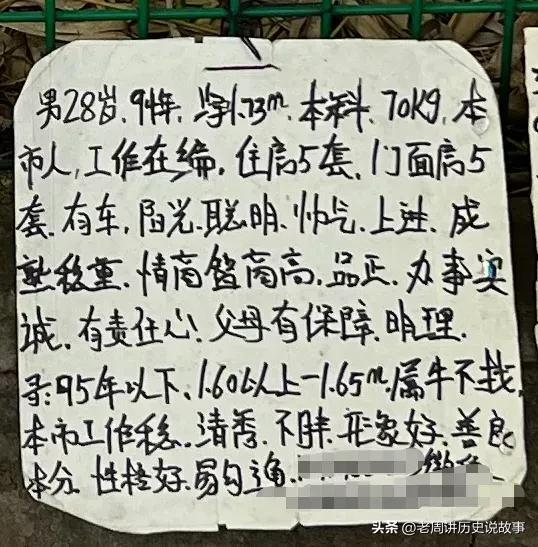 男28岁.94年.净1.73m.本科.70Kg.本
市人,工作在编.住房5套.门面房5
套.有车,阳光.聪明.帅气.上进.成
熟稳重.情商智商高.品正.办事实
诚.有责任心!父母有保障.明理.
寻:95年以下、1.60以上-1.65m.属牛不找.
本市工作稳.清秀.不胖.形象好.善良
本分.性格好.易勾通.
头条@老周讲历史说故事